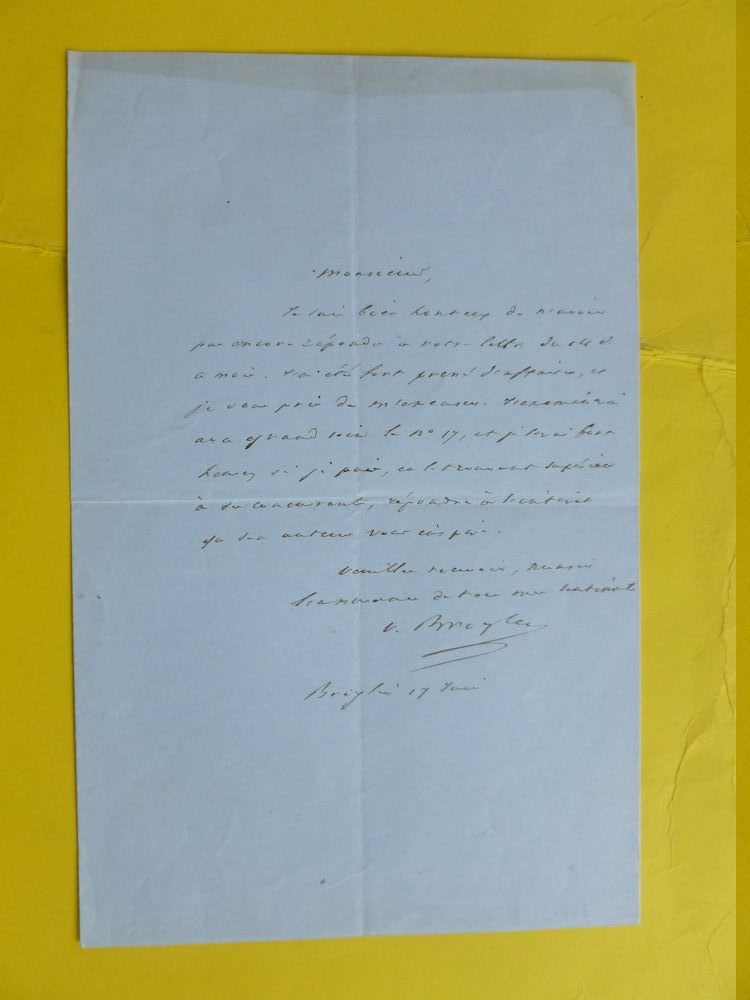 Monsieur,
Je suis bien honteux de n'avoir
pas encore répondu à votre lettre du
ce mois. J'ai été fort pressé d'affaires, et
je vous prie de m'excuser. J'examinerai
avec grand soin le no 17, et je serai fort
heureux si je puis, en le trouvant supérieur
à ses concurrents, répondre à l'intérêt
que son auteur vous inspire.
Veuillez recevoir, Monsieur
l'assurance de tous mes sentiments
v. Broglie
Broglie 17 Juin